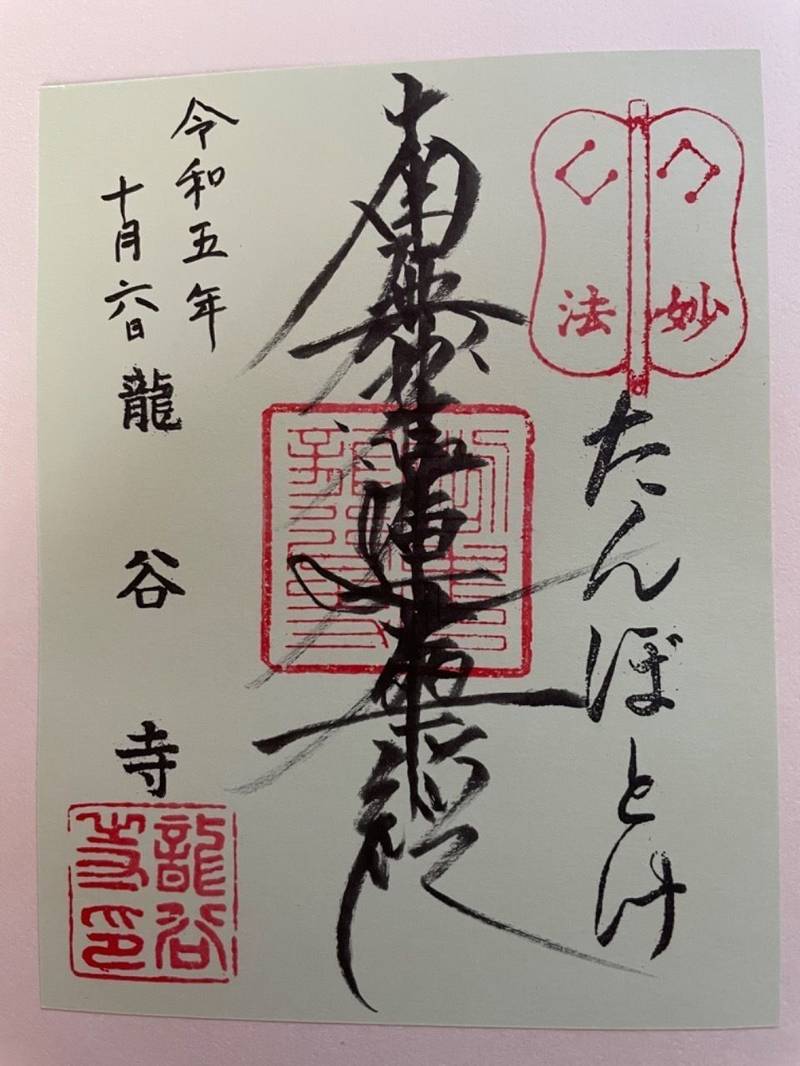 妙法
たんぼとけ
南無妙法蓮華経
令和五年
十月六日
龍谷寺
龍谷寺印